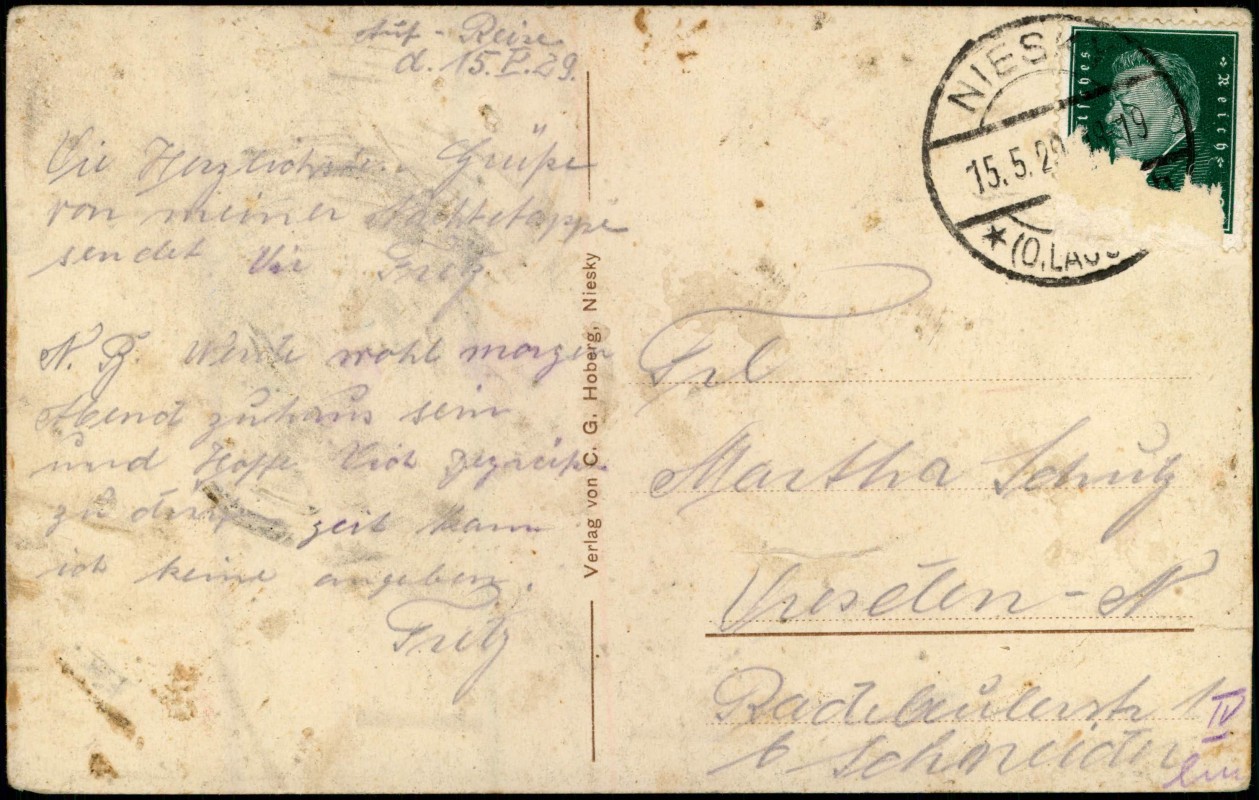 Auf - Reise
d. 15. V. 29.
Die Herzlichsten Grüße
von meiner
sendet Dir Fritz
N. B. Werde wohl morgen
Abend zuhaus sein
und Hoffe Dich
zu zeit kann
ich keine angeben.
Fritz
Verlag von C. G. Hoberg, Niesky
NIESKY
15.5.29. 18-19
★ (O.LAUS
Deutsches Reich
Frl
Martha Schulz
Dresden - N
Radebeulerstr 1
IV
b Schneider